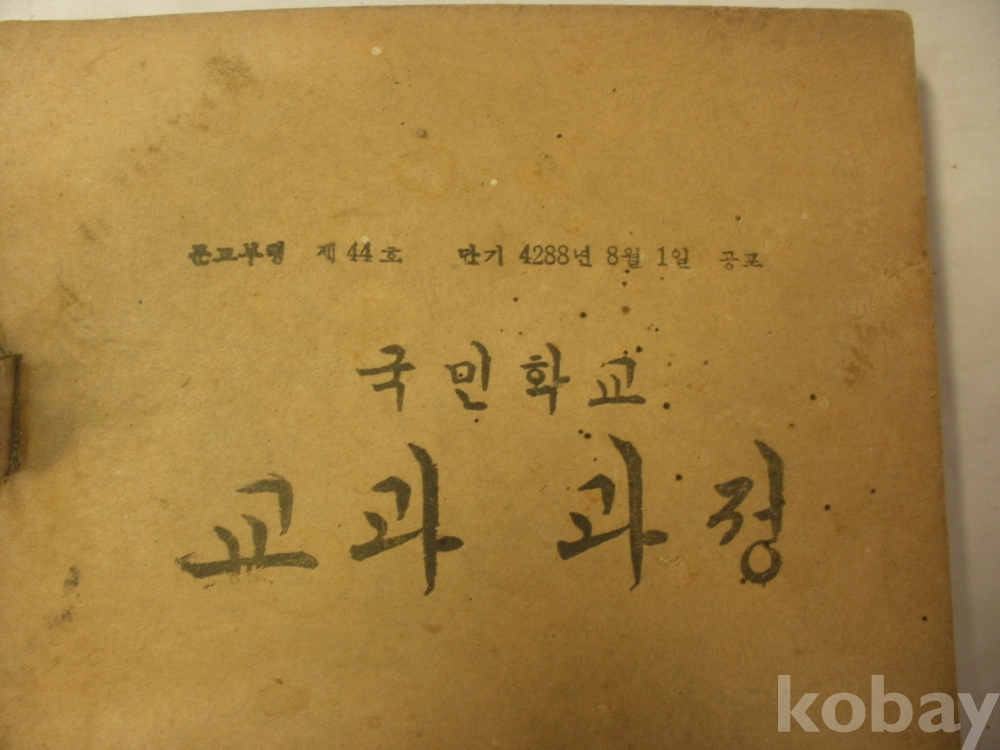 문교부령 제 44 호 단기 4288년 8월 1일 공포
국민학교
교과 과정
kobay